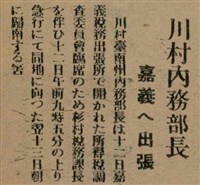 川村内務部長
嘉義へ出張
川村臺南州内務部長は十二日嘉
義税務出張所で開かれた所得税調
査委員會臨席のため杉村税務課長
を伴ひ十二日午前九時五分の上り
急行にて同地に向つた翌十三日朝
に歸南する筈